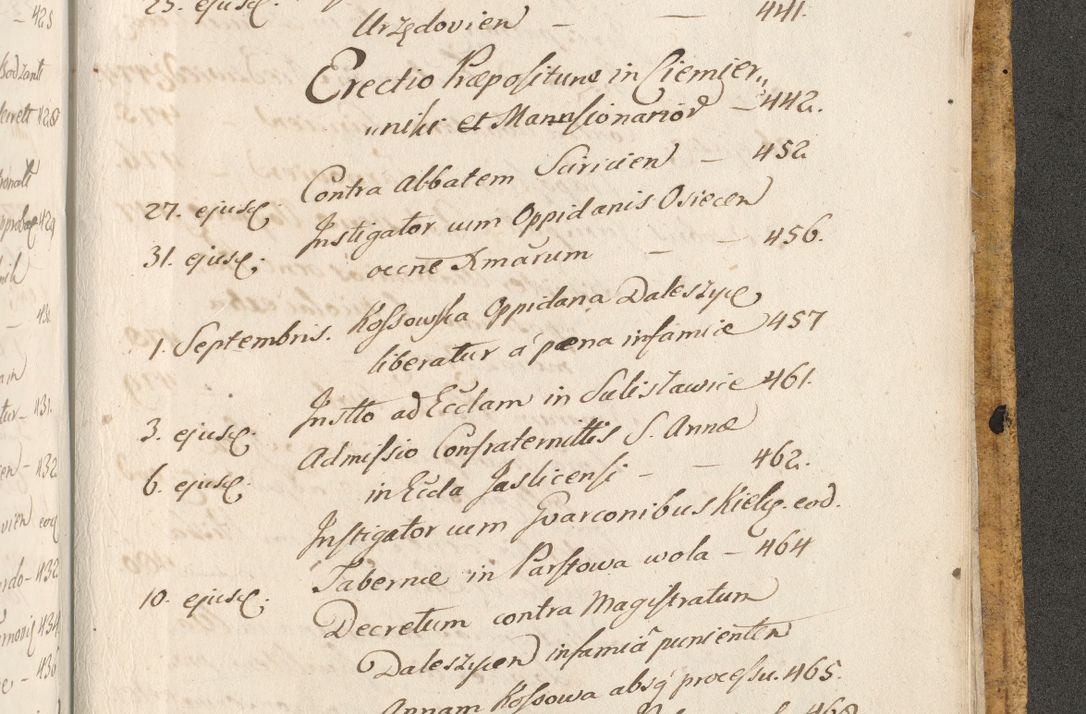 25. ejusd.
Urzędovien – – 441.
Erectio Præpositure in Ciemier„
„niki et Mansionarior – 442.
Contra Abbatem Sciricien – 452
27. ejusd. Instigator cum Oppidanis Osiecen
31. ejusd. occne Kmarum – – 456.
1. Septembris. Kossowska Oppidana Daleszyc
liberatur á pœna infamiæ 457
3. ejusd. Instto ad Ecclam in Sulisławice 461.
6. ejusd. Admissio Confraternittis S. Annæ
in Eccla Jaslicensi – – 462.
Instigator cum Gvarconibus Kielc. eod.
10. ejusd. Tabernæ in Parszowa wola – 464
Decretum contra Magistratum
Daleszycen infamiâ punientem
Annam Kossowa absq processu. 465.
468
– 425
428
429
431.
– 432
eod
– 432
434
– 436